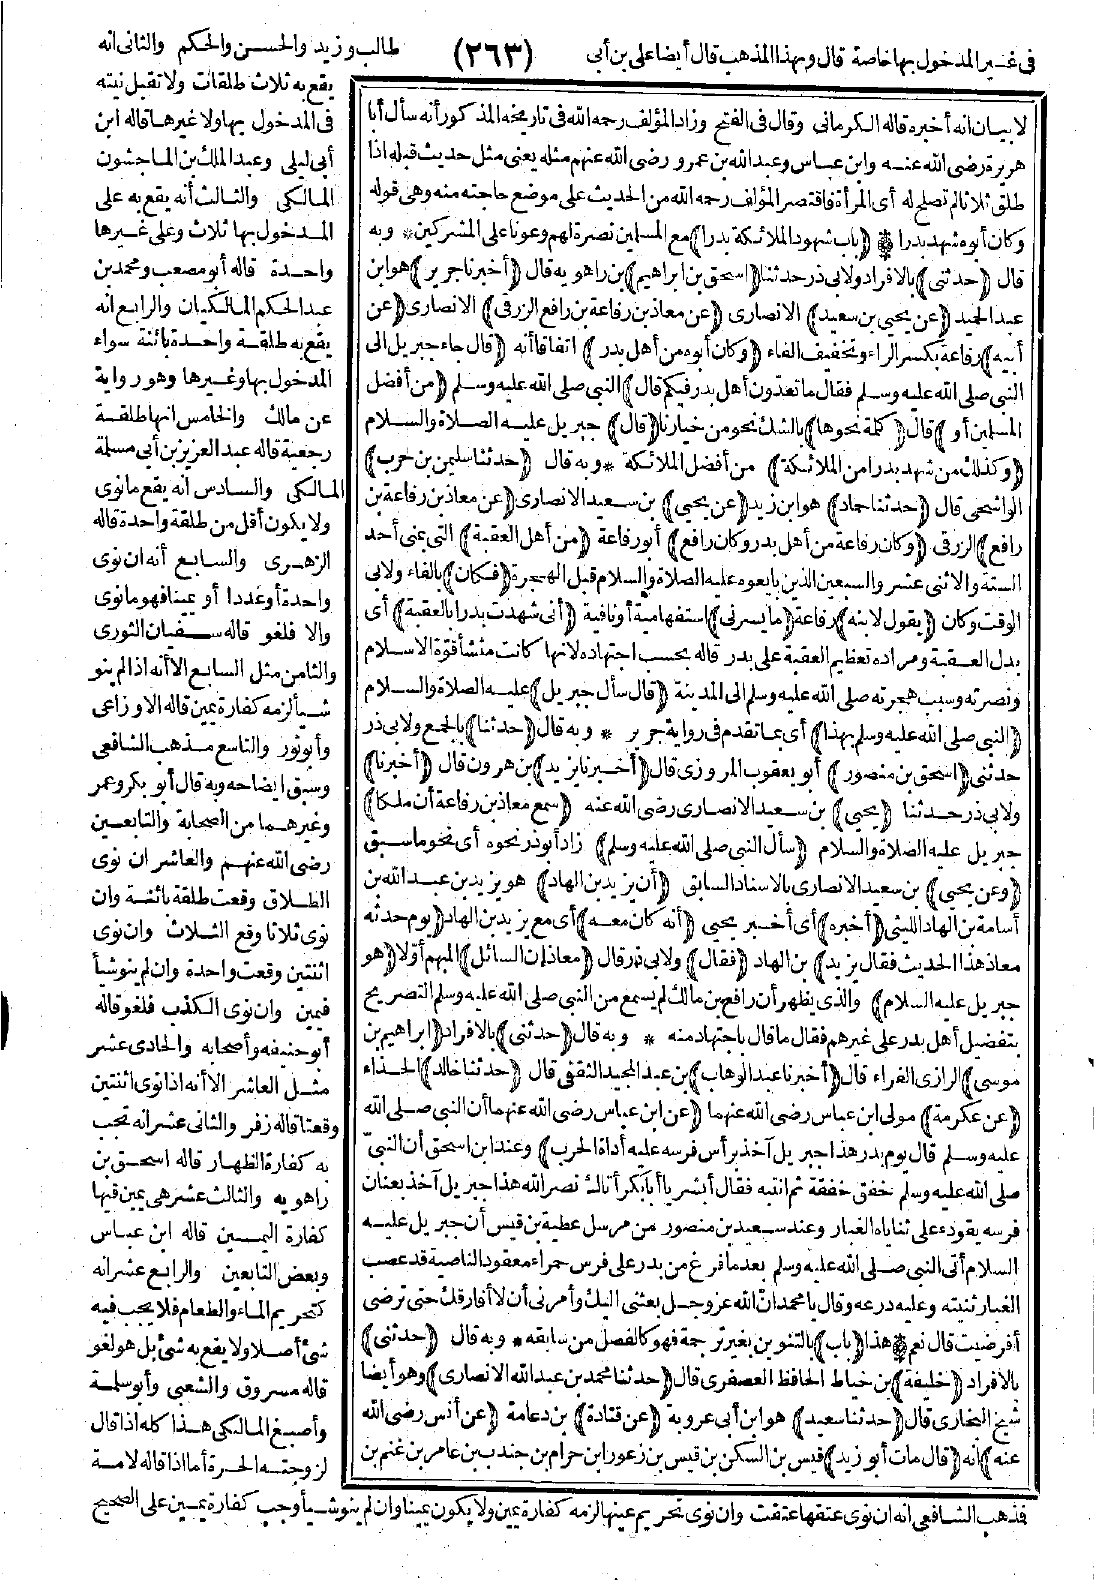 فى غير المدخول بها خاصة قال وبهذا المذهب قال أيضا على بن أبى (٢٦٣) طالب وزيد والحسن والحكم والثانى انه
لا بيان انه أخبره قاله الكرمانى وقال فى الفتح وزاد المؤلف رحمه الله فى تاريخه المذكور أنه سأل أبا
هريرة رضى الله عنه وابن عباس وعبد الله بن عمرو رضى الله عنهم مثله يعنى مثل حديث قبله اذا
طلق ثلاثا لم تصلح له أى المرأة فاقتصر المؤلف رحمه الله من الحديث على موضع حاجته منه وهى قوله
وكان أبوه شهد بدرا * (باب شهود الملائكة بدرا) مع المسلمين نصرة لهم وعونا على المشركين * وبه
قال (حدثنى) بالافراد ولابى ذر حدثنا (اسحق بن ابراهيم) بن راهويه قال (أخبرنا جرير) هو ابن
عبد الحميد (عن يحيى بن سعيد) الانصارى (عن معاذ بن رفاعة بن رافع الزرقى) الانصارى (عن
أبيه) رفاعة بكسر الراء وتخفيف الفاء (وكان أبوه من أهل بدر) اتفاقا أنه (قال جاء جبريل الى
النبى صلى الله عليه وسلم فقال ما تعدون أهل بدر فيكم قال) النبى صلى الله عليه وسلم (من أفضل
المسلمين أو) قال (كلمة نحوها) بالشك نحو من خيارنا (قال) جبريل عليه الصلاة والسلام
(وكذلك من شهد بدرا من الملائكة) من أفضل الملائكة * وبه قال (حدثنا سليمن بن حرب)
الواشحى قال (حدثنا حماد) هو ابن زيد (عن يحيى) بن سعيد الانصارى (عن معاذ بن رفاعة بن
رافع) الزرقى (وكان رفاعة من أهل بدر وكان رافع) أبو رفاعة (من أهل العقبة) التى بمنى أحد
الستة والاثنى عشر والسبعين الذين بايعوه عليه الصلاة والسلام قبل الهجرة (فكان) بالفاء ولابى
الوقت وكان (يقول لابنه) رفاعة (ما يسرنى) استفهامية أو نافية (أنى شهدت بدرا بالعقبة) أى
بدل العقبة ومراده تعظيم العقبة على بدر قاله بحسب اجتهاده لانها كانت منشأ قوة الاسلام
ونصرته وسبب هجرته صلى الله عليه وسلم الى المدينة (قال سأل جبريل) عليه الصلاة والسلام
(النبى صلى الله عليه وسلم بهذا) أى بما تقدم فى رواية جرير * وبه قال (حدثنا) بالجمع ولابى ذر
حدثنى (اسحق بن منصور) أبو يعقوب المروزى قال (أخبرنا يزيد) بن هرون قال (أخبرنا)
ولابى ذر حدثنا (يحيى) بن سعيد الانصارى رضى الله عنه (سمع معاذ بن رفاعة أن ملكا)
جبريل عليه الصلاة والسلام (سأل النبى صلى الله عليه وسلم) زاد أبو ذر نحوه أى نحو ما سبق
(وعن يحيى) بن سعيد الانصارى بالاسناد السابق (أن يزيد بن الهاد) هو يزيد بن عبد الله بن
أسامة بن الهاد الليثى (أخبره) أى أخبر يحيى (أنه كان معه) أى مع يزيد بن الهاد (يوم حدثه
معاذ هذا الحديث فقال يزيد) بن الهاد (فقال) ولابى ذر قال (معاذ ان السائل) المبهم أولا (هو
جبريل عليه السلام) والذى يظهر أن رافع بن مالك لم يسمع من النبى صلى الله عليه وسلم التصريح
بتفضيل أهل بدر على غيرهم فقال ما قال باجتهاد منه * وبه قال (حدثنى) بالافراد (ابراهيم بن
موسى) الرازى الفراء قال (أخبرنا عبد الوهاب) بن عبد المجيد الثقفى قال (حدثنا خالد) الحذاء
(عن عكرمة) مولى ابن عباس رضى الله عنهما (عن ابن عباس رضى الله عنهما أن النبى صلى الله
عليه وسلم قال يوم بدر هذا جبريل آخذ برأس فرسه عليه أداة الحرب) وعند ابن اسحق أن النبى
صلى الله عليه وسلم خفق خفقة ثم انتبه فقال أبشر يا أبا بكر أتاك نصر الله هذا جبريل آخذ بعنان
فرسه يقوده على ثناياه الغبار وعند سعيد بن منصور من مرسل عطية بن قيس أن جبريل عليه
السلام أتى النبى صلى الله عليه وسلم بعد ما فرغ من بدر على فرس حمراء معقود الناصية قد عصب
الغبار ثنيته وعليه درعه وقال يا محمد ان الله عز وجل بعثنى اليك وأمرنى أن لا أفارقك حتى ترضى
أفرضيت قال نعم * هذا (باب) بالتنوين بغير ترجمة فهو كالفصل من سابقه * وبه قال (حدثنى)
بالافراد (خليفة) بن خياط الحافظ العصفرى قال (حدثنا محمد بن عبد الله الانصارى) وهو أيضا
شيخ البخارى قال (حدثنا سعيد) هو ابن أبى عروبة (عن قتادة) بن دعامة (عن أنس رضى الله
عنه) انه (قال مات أبو زيد) قيس بن السكن بن قيس بن زعورا بن حرام بن جندب بن عامر بن غنم بن
يقع به ثلاث طلقات ولا تقبل نيته
فى المدخول بها ولا غيرها قاله ابن
أبى ليلى وعبد الملك بن الماجشون
المالكى والثالث أنه يقع به على
المدخول بها ثلاث وعلى غيرها
واحدة قاله أبو مصعب ومحمد بن
عبد الحكم المالكيان والرابع انه
يقع به طلقة واحدة بائنة سواء
المدخول بها وغيرها وهو رواية
عن مالك والخامس انها طلقة
رجعية قاله عبد العزيز بن أبى مسلمة
المالكى والسادس انه يقع ما نوى
ولا يكون أقل من طلقة واحدة قاله
الزهرى والسابع أنه ان نوى
واحدة أو عددا أو يمينا فهو ما نوى
والا فلغو قاله سفيان الثورى
والثامن مثل السابع الا أنه اذا لم ينو
شيأ لزمه كفارة يمين قاله الاوزاعى
وأبو ثور والتاسع مذهب الشافعى
وسبق ايضاحه وبه قال أبو بكر وعمر
وغيرهما من الصحابة والتابعين
رضى الله عنهم والعاشر ان نوى
الطلاق وقعت طلقة بائنة وان
نوى ثلاثا وقع الثلاث وان نوى
اثنتين وقعت واحدة وان لم ينو شيأ
فيمين وان نوى الكذب فلغو قاله
أبو حنيفه وأصحابه والحادى عشر
مثل العاشر الا أنه اذا نوى اثنتين
وقعتا قاله زفر والثانى عشر انه تجب
به كفارة الظهار قاله اسحق بن
راهويه والثالث عشر هى يمين فيها
كفارة اليمين قاله ابن عباس
وبعض التابعين والرابع عشر انه
كتحريم الماء والطعام فلا يجب فيه
شئ أصلا ولا يقع به شئ بل هو لغو
قاله مسروق والشعبى وأبو سلمة
وأصبغ المالكى هذا كله اذا قال
لزوجته الحرة أما اذا قاله لامة
فذهب الشافعى انه ان نوى عتقها عتقت وان نوى تحريم عينها لزمه كفارة يمين ولا يكون يمينا وان لم ينو شيأ وجب كفارة يمين على الصحيح